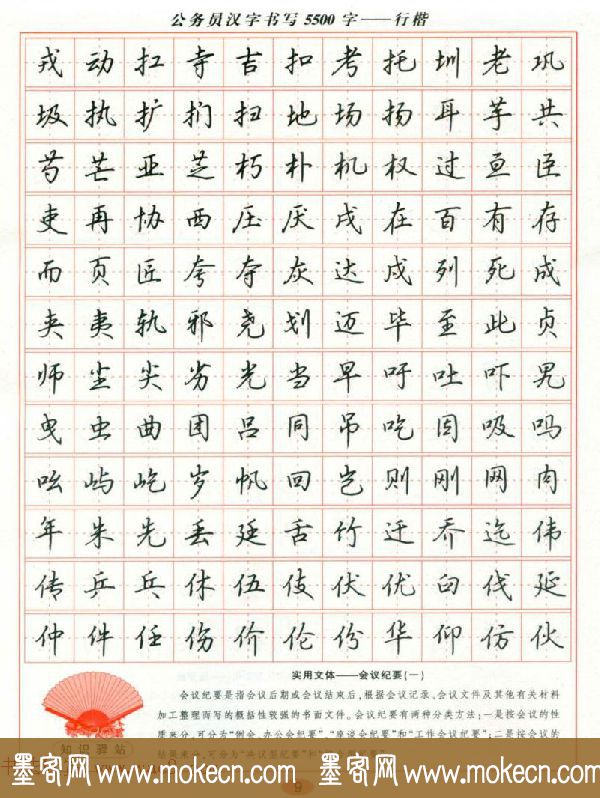 公务员汉字书写5500字——行楷
戎动扛寺吉扣考托圳老巩
圾执扩扪扫地场扬耳芋共
芍芒亚芝朽朴机权过亘臣
吏再协西压厌戌在百有存
而页匠夸夺灰达戍列死成
夹夷轨邪尧划迈毕至此贞
师尘尖劣光当早吁吐吓男
曳虫曲团吕同吊吃因吸吗
吆屿屹岁帆回岂则刚网肉
年朱先丢廷舌竹迁乔迄伟
传乒乓休伍伎伏优臼伐延
仲件任伤价伦份华仰仿伙
实用文体——会议纪要(一)
会议纪要是指会议后期或会议结束后,根据会议记录、会议文件及其他有关材料
加工整理而写的概括性较强的书面文件。会议纪要有两种分类方法:一是按会议的性
质来分,可分为“例会、办公会纪要”、“座谈会纪要”和“工作会议纪要”;二是按会议的
知识驿站
墨客网 www.mokecn.com 墨客网 www.mokecn.com
9